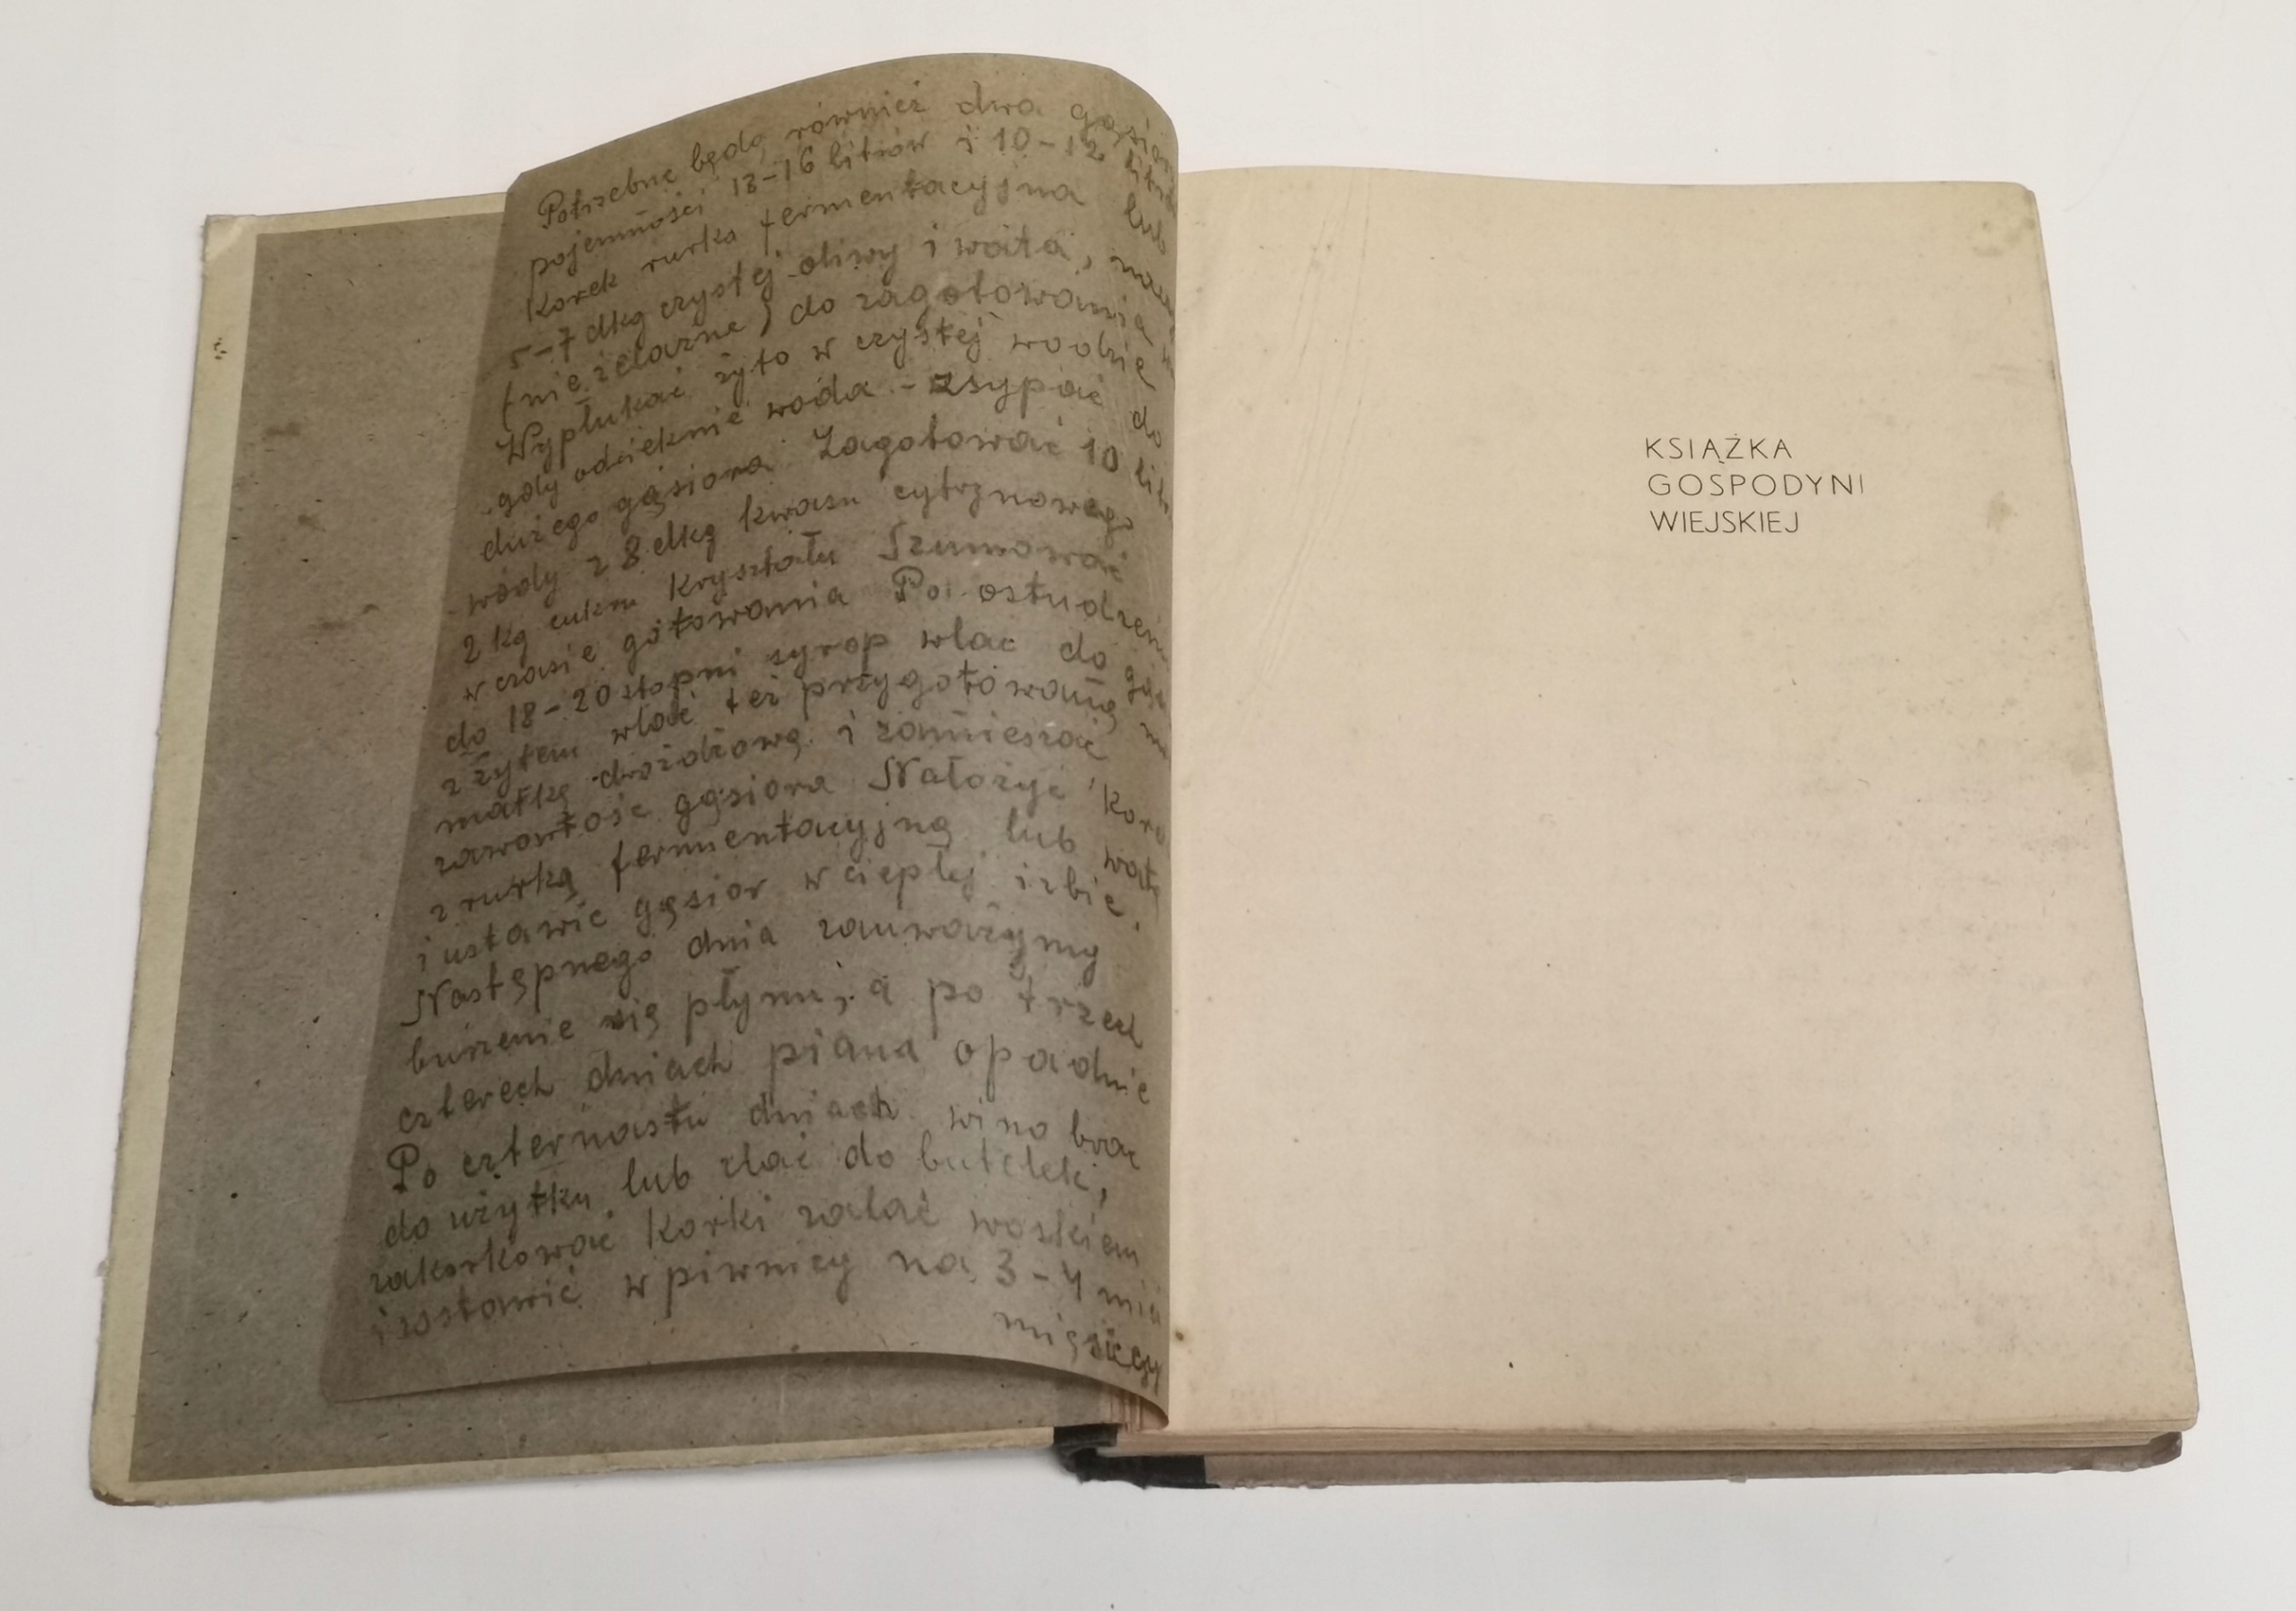 Potrzebne będą również dwa gąsiory
pojemności 13-16 litrów i 10-12 litrów
Korek rurka fermentacyjna lub
5-7 dkg czystej oliwy i wata,
(nie żelazne) do zagotowania
Wypłukać żyto w czystej wodzie
gdy odcieknie woda - zsypać do
dużego gąsiora Zagotować 10
wody z 8 dkg kwasu cytrynowego
2 kg cukru kryształu Szumować
w czasie gotowania Po ostudzeniu
do 18-20 stopni syrop wlac do
z żytem wlać też przygotowaną
matkę drożdżową i zamieszać
zawartość gąsiora Nałożyć
z rurką fermentacyjną lub watą
i ustawic gąsior w ciepłej izbie.
Następnego dnia zauważymy
burzenie się płynu, a po trzech
czterech dniach piana opadnie
Po czternastu dniach wino brac
do użytku lub zlać do butelek,
zakorkować korki zalać woskiem
i zostawić w piwnicy na 3-4
miesięcy
KSIĄŻKA
GOSPODYNI
WIEJSKIEJ